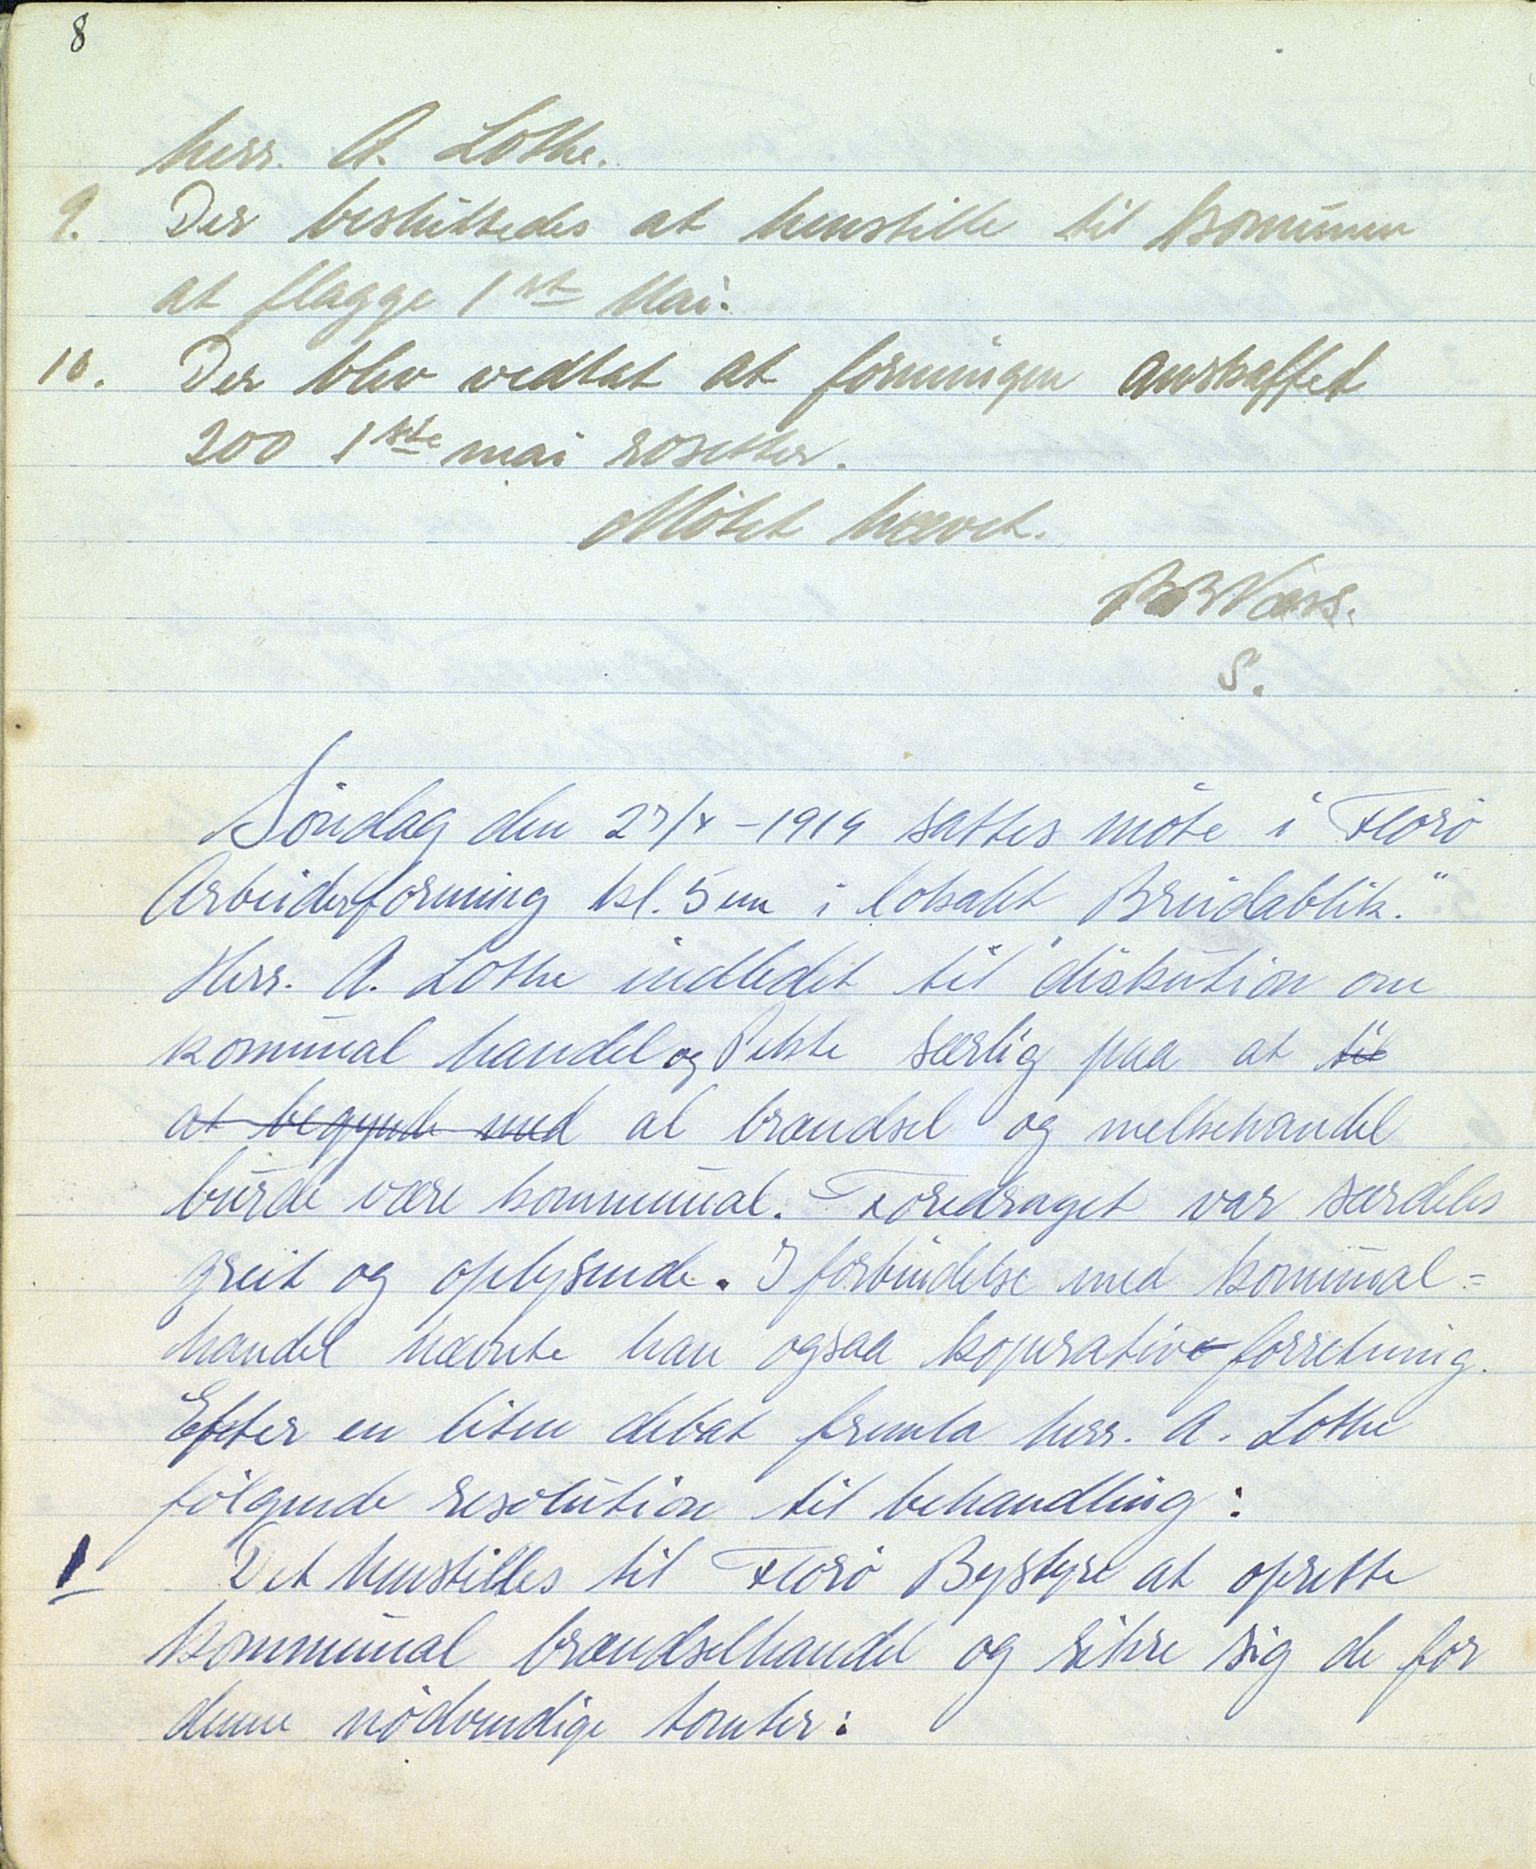 8
herr. A. Lothe.
9. Der besluttedes at henstille til komunen
at flagge 1st Mai.
10. Der blev vedtat at foreningen anskaffet
200 1ste mai rosetter.
Mötet hævet.
S.
Söndag den 27/4 - 1919 sattes möte i Florö
Arbeiderforening kl. 5 em i lokalet Breidablik."
Herr. A. Lothe indledet til diskution om
komunal handel og Pekte særlig paa at til
at begynde med al brændsel og melkehandel
burde være kommunal. Foredraget var særdeles
greit og oplysende. I forbindelse med komunal=
handel nævnte han ogsaa koperative forretning.
Efter en liten debat fremla herr. A. Lothe
følgende resolution til behandling:
1 Det henstilles til Florö Bystyre at oprette
kommunal brændselhandel og sikre sig de for
denne nödvendige tomter: